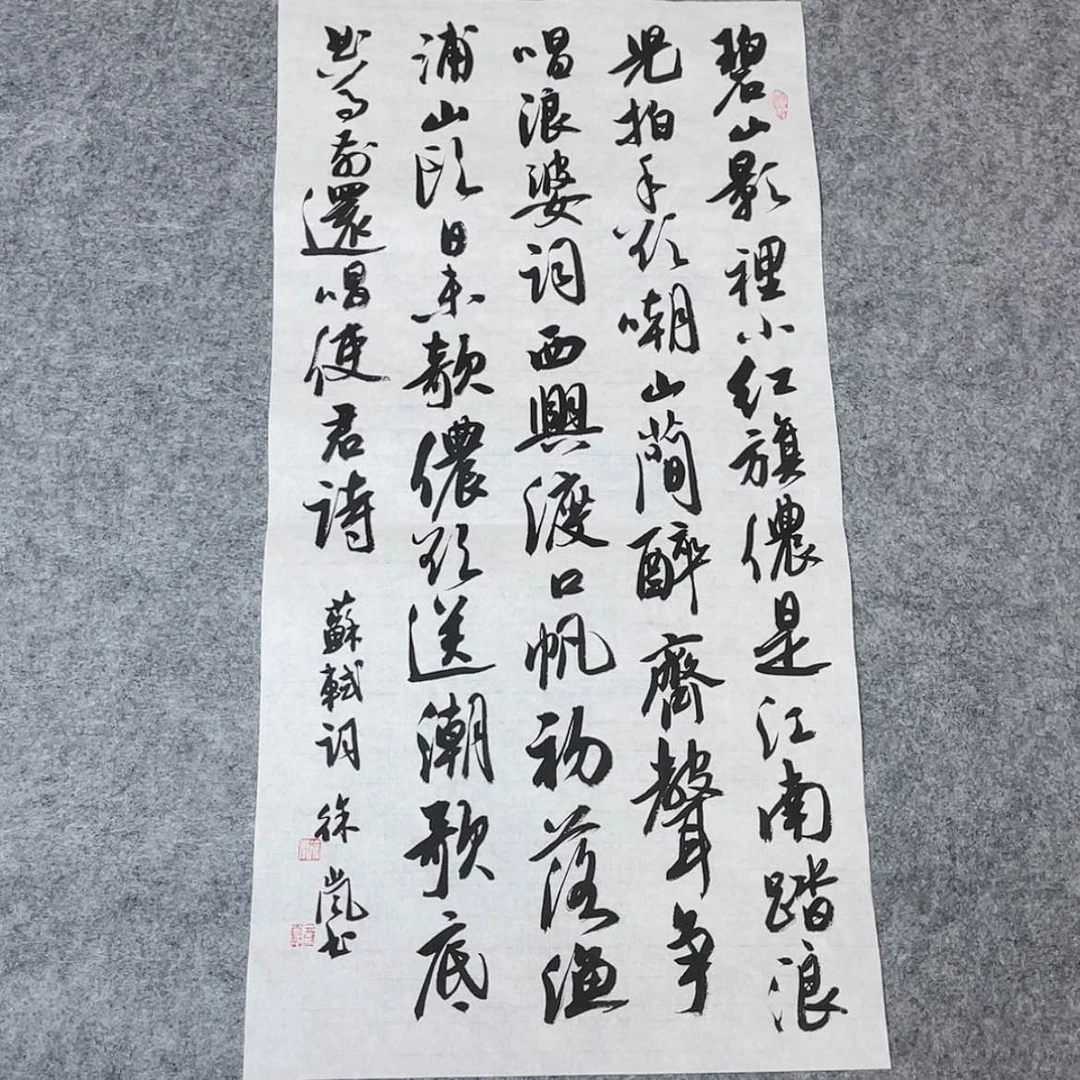 碧山影裡小红旗儂是江南踏浪
兒拍手欲嘲山蕳醉齊聲争
唱浪婆詞西興渡口帆初落漁
浦山頭日未欹儂欲送潮歌底
曲尊前還唱使君詩 蘇軾詞 徐嵐书